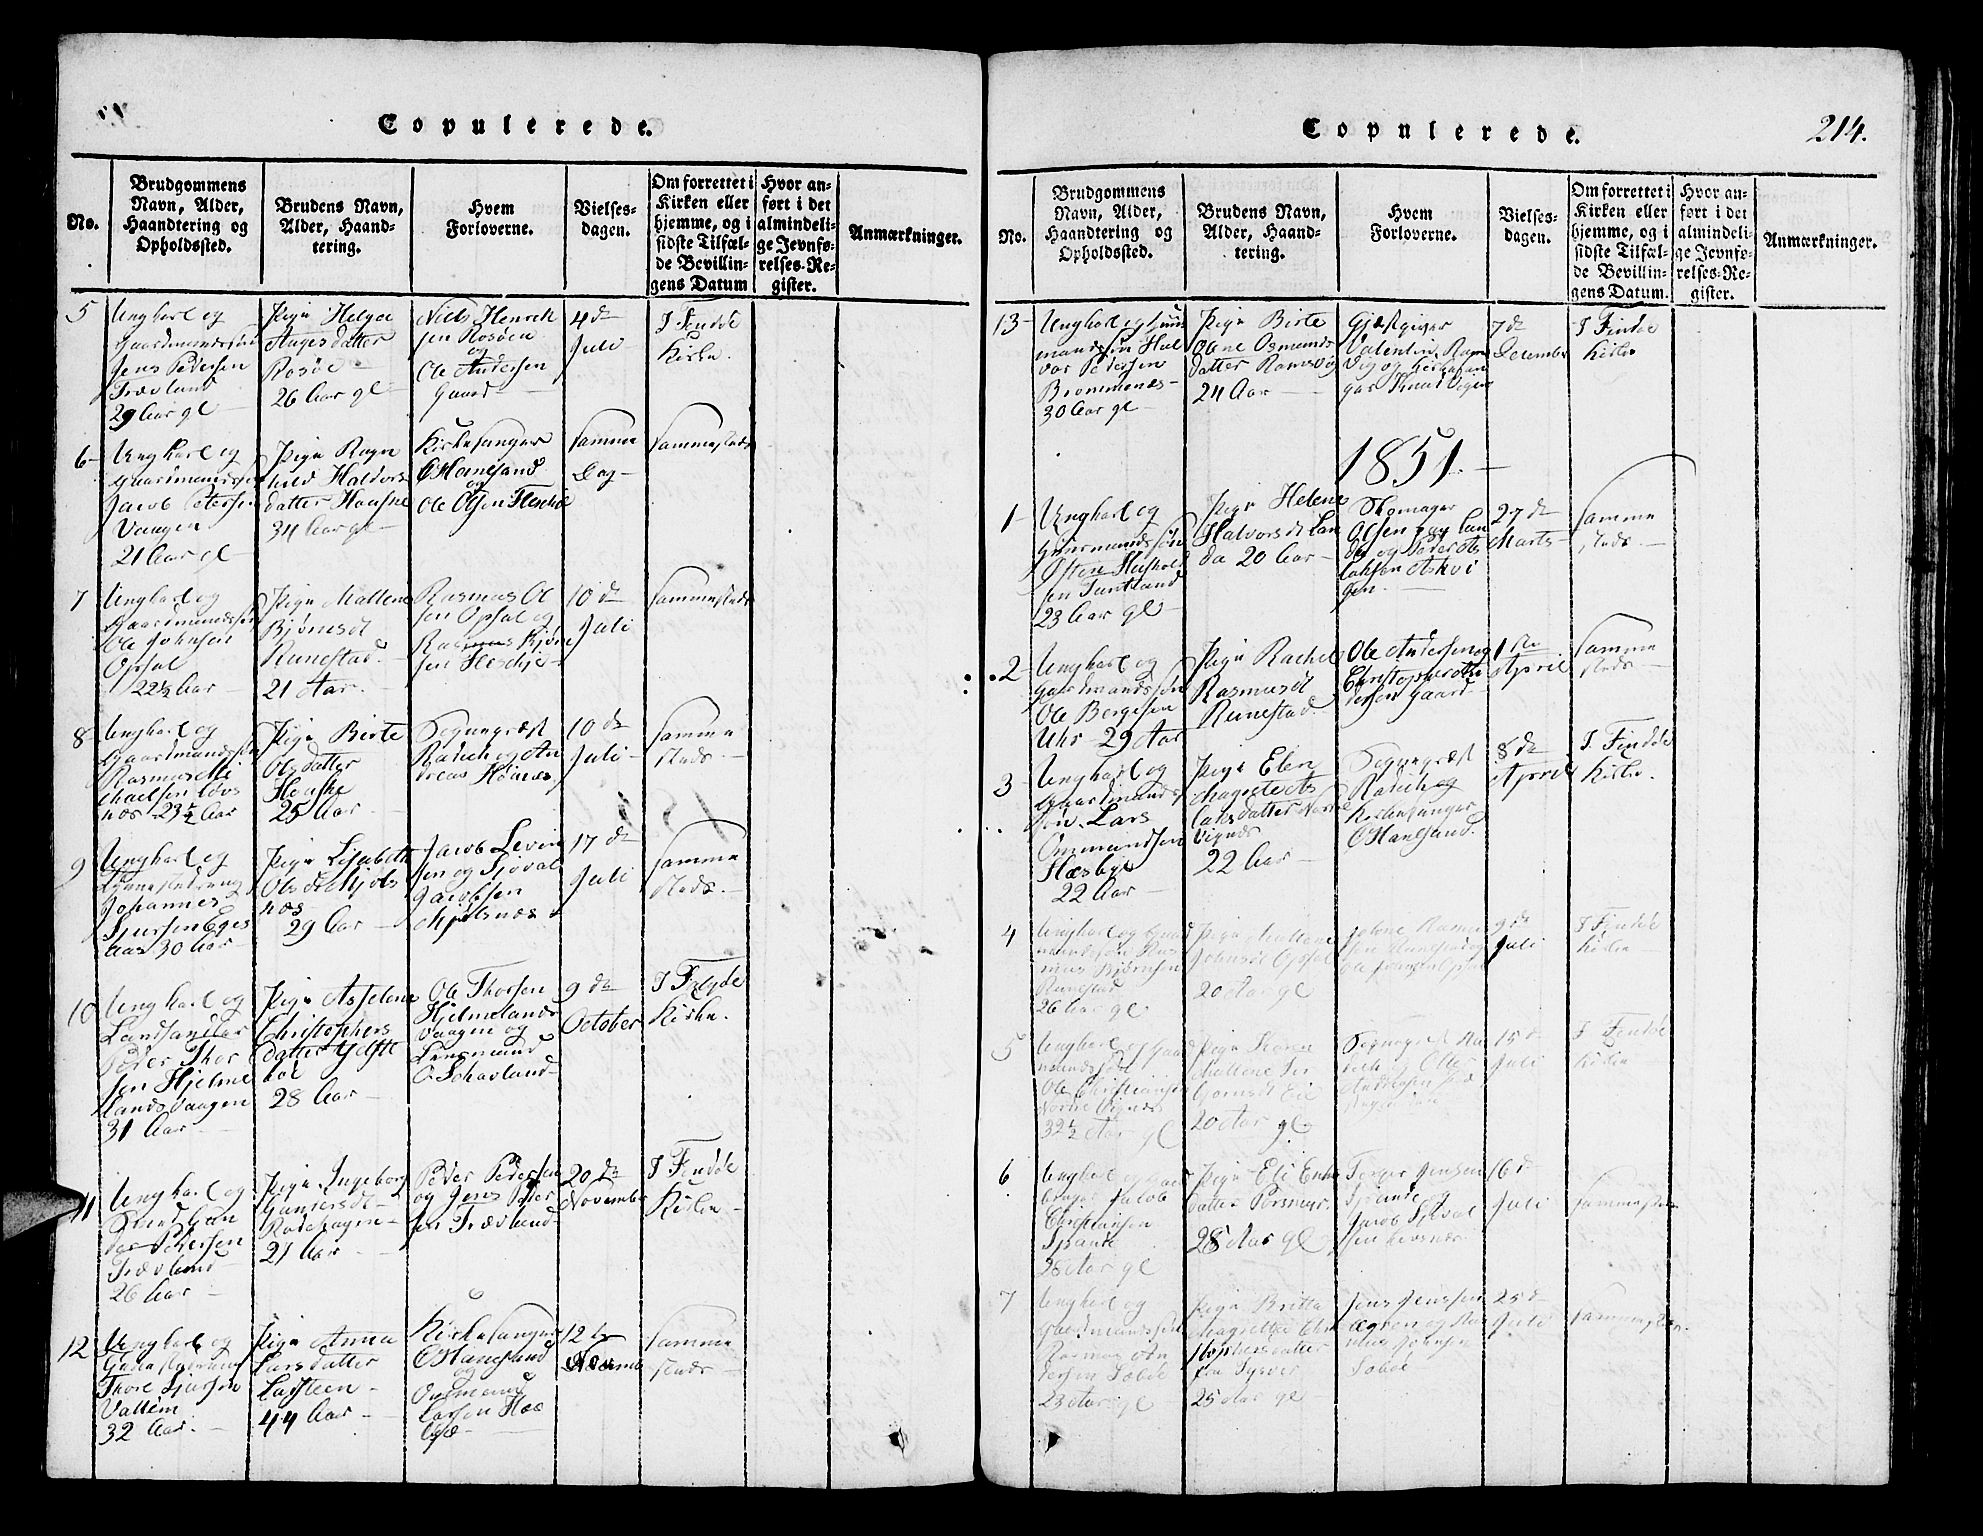 Copulerede.
No.
Brudgommens
Navn, Alder,
Haandtering og
Opholdssted.
Brudens Navn,
Alder, Haand-
tering.
Hvem
Forloverne.
Vielses-
dagen.
Om forrettet i
Kirken eller
hjemme, og i
sidste Tilfæl-
de Bevillin-
gens Datum
Hvor an-
ført i det
almindeli-
ge Jevnfø-
relses-Re-
gister.
Anmærkninger.
5
Ungkarl og
Gaardmandssøn
Jens Pedersen
Trævland
29 Aar gl
Pige Helga
Aagesdatter
Rosøe
26 Aar gl
Niels Henrik
sen Rosøen
og
Ole Andersen
Gaard
4de
Juli
I Findøe
Kirke.
6
Ungkarl og
Gaardmandssøn
Jacob Petersen
Vaagen
21 Aar gl
Pige Ragn
hild Haldors
datter
34 Aar gl
Kirkesanger
O Hanesand
og
Ole Olsen
samme
Dag
sammesteds
7
Ungkarl og
Gaardmandssøn
Ole Johnsen
Opsal
22½ Aar
Pige Mallene
Bjørnsdt
Runestad.
21 Aar.
Rasmus Ol
sen Opsal og
Rasmus Bjørn
sen
10de
Juli
sammesteds
8
Ungkarl og
Gaardmandssøn
Rasmus Mi
chaelsen Løvs
næs 23½ Aar
Pige Birte
Olsdatter
25 Aar
Sognepræst
Radich og An
dreas
10de
Juli
samme
steds.
9
Ungkarl og
Johannes
Sjursen Eges
aas 30 Aar
Pige Lisabeth
Olsdt Mjøls
næs
29 Aar
Jacob Levin
sen og Sjoval
Jacobsen
Mjølsnæs
17de
Juli
samme
steds.
10
Ungkarl og
Landhandler
Peder Thor
sen Hjelme
landsvaagen
31 Aar
Pige Asselene
Christophers
datter
28 Aar
Ole Thorsen
Hjelmelands
vaagen og
Lensmand
O. Schavland
9de
October
I Findøe
Kirke.
11
Ungkarl og
Pedersen
Trævland
26 Aar
Pige Ingeborg
Gunersdt
21 Aar
Peder Pedersen
og Jens Peder
sen Trævland
20de
November
I Findøe
Kirke
12
Ungkarl og
Thore Sjursen
32 Aar.
Pige Anna
Larsdatter
Larsteen
44 Aar
Kirkesanger
O Hanesand
og
Ommund
Larsen
12te
samme
steds
Copulerede.
214.
No.
Brudgommens
Navn, Alder,
Haandtering og
Opholdssted.
Brudens Navn,
Alder, Haand-
tering.
Hvem
Forloverne.
Vielses-
dagen.
Om forrettet i
Kirken eller
hjemme, og i
sidste Tilfæl-
de Bevillin-
gens Datum.
Hvor an-
ført i det
almindeli-
ge Jevnfø-
relses-Re-
gister.
Anmærkninger.
13
Ungkarl og Huus
mandssøn Hal
vor Pedersen
Brommenæs
30 Aar gl
Pige Birte
Olene Osmunds
datter Ramsvig
24 Aar
Gjæstgiver
Valentin Rams
vig og Kirkesan
ger Knud Vigen
7de
December
I Findøe
Kirke
1851.
1
Ungkarl og
Gaardmandssøn
Østen
23 Aar gl
Pige Helene
Halvorsdt Lan
da 20 Aar
Skomager
Olsen
da og Peder As
laksen Askvi
gen
27de
Marts
samme
steds.
2
Ungkarl og
Gaardmandssøn
Ole Bergesen
Uhr 29 Aar
Pige Rachel
Rasmusdt
Runestad
Ole Andersen og
Christopher An
dersen Gaard
1ste
April
samme
steds
3
Ungkarl og
Gaardmands
søn Lars
Ommundsen
Hæsbye
22 Aar
Pige Elen
Magrete As
laksdatter Nordre
Vignes
22 Aar
Sognepræst
Radich og
Kirkesanger
O Hanesand.
8de
April
I Findøe
Kirke.
4
Ungkarl og Gaard
mandssøn Ras
mus Bjørnsen
Runestad
26 Aar gl
Pige Mallene
Johnsdt Opsal
20 Aar gl
Johne Rasmu
sen Runestad og
9de
Juli
I Findøe
Kirke
5
Ungkarl og Gaard
mandssøn
Ole Christiansen
Nordre Vignes
32½ Aar gl
Pige
Mallene Tor
bjørnsdt Eie
20 Aar gl
Sognepræst Ra
dich og Ole
Andersen
15de
Juli
I Findøe
Kirke
6
Ungkarl og Gaard
bruger Jacob
Christiansen
Spande
28 Aar gl
Pige Eli
datter
28 Aar gl
Jensen
Spande og
Jacob Sjoval
sen
16de
Juli
sammesteds
7
Ungkarl og
Gaardmandssøn
An
dersen
23 Aar gl
Pige Britta
Magrethe Chri
stophersdatter
fra
25 Aar gl
Jens Jenssen
Johnsen
25de
Juli
sammesteds.